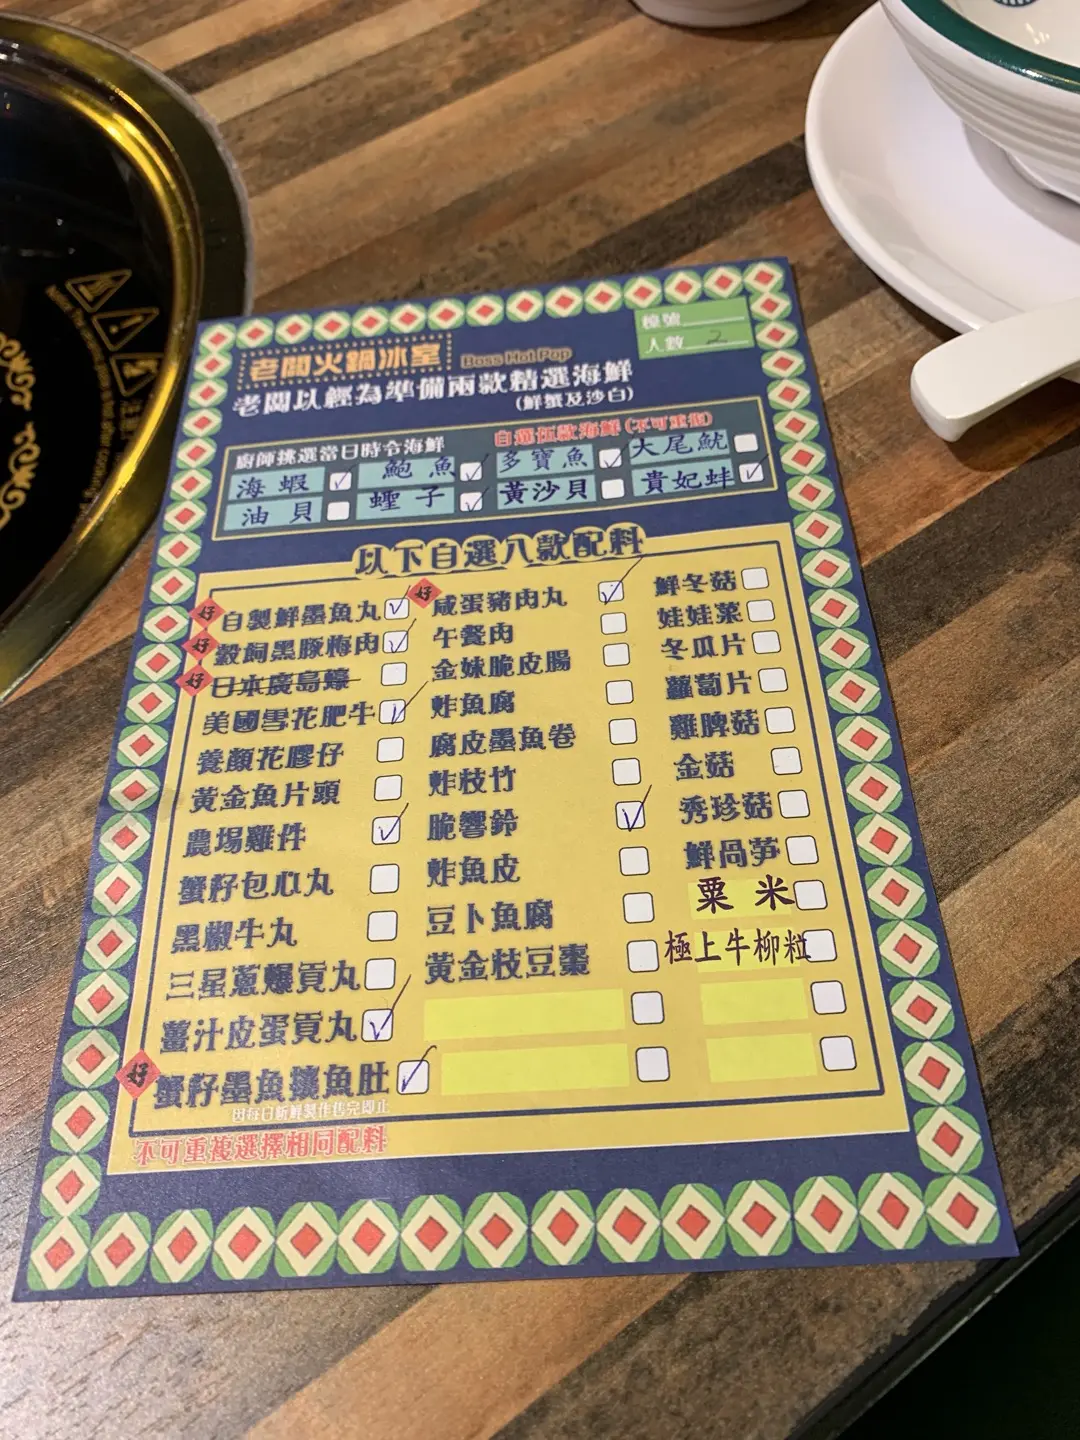 老闆火鍋冰室 Boss Hot Pop
檯號
人數 2
老闆以經為準備兩款精選海鮮
(鮮蟹及沙白)
廚師挑選當日時令海鮮
自選伍款海鮮(不可重復)
海蝦 ✓ 鮑魚 ✓ 多寶魚 ✓ 大尾魷
油貝 蟶子 ✓ 黃沙貝 貴妃蚌 ✓
以下自選八款配料
好 自製鮮墨魚丸 ✓
好 穀飼黑豚梅肉 ✓
好 日本廣島蠔
美國雪花肥牛 ✓
養顏花膠仔
黃金魚片頭
農場雞件 ✓
蟹籽包心丸
黑椒牛丸
三星蔥爆貢丸
薑汁皮蛋貢丸 ✓
好 蟹籽墨魚釀魚肚 ✓
因每日新鮮製作售完即止
好 咸蛋豬肉丸 ✓
午餐肉
金妹脆皮腸
炸魚腐
腐皮墨魚卷
炸枝竹
脆響鈴 ✓
炸魚皮
豆卜魚腐
黃金枝豆棗
鮮冬菇
娃娃菜
冬瓜片
蘿蔔片
雞脾菇
金菇
秀珍菇
鮮萵笋
粟米
極上牛柳粒
不可重複選擇相同配料